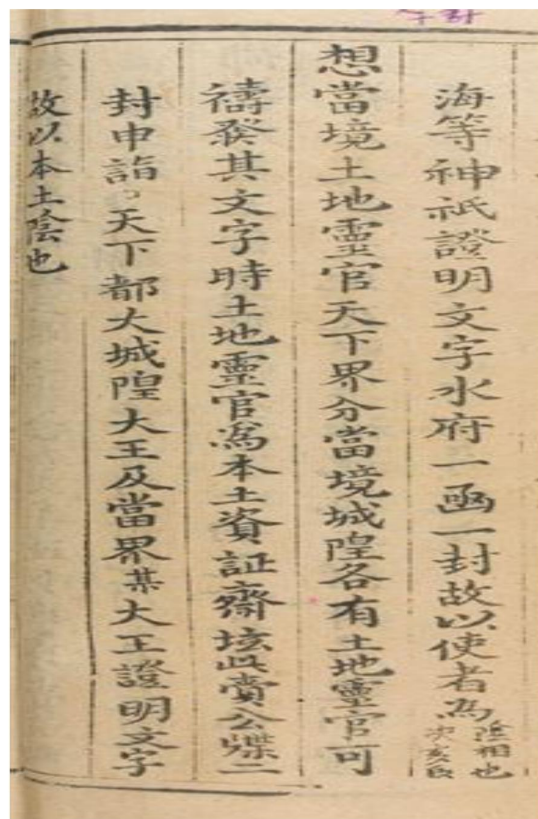 海等神祇證明文字水府一函一封故以使者為陰相也次亥民
想當境土地靈官天下界分當境城隍各有土地靈官可
禱發其文字時土地靈官為本土資証齋垓此賫公牒二
封申詣天下都大城隍大王及當界某大王證明文字
故以本土陰也